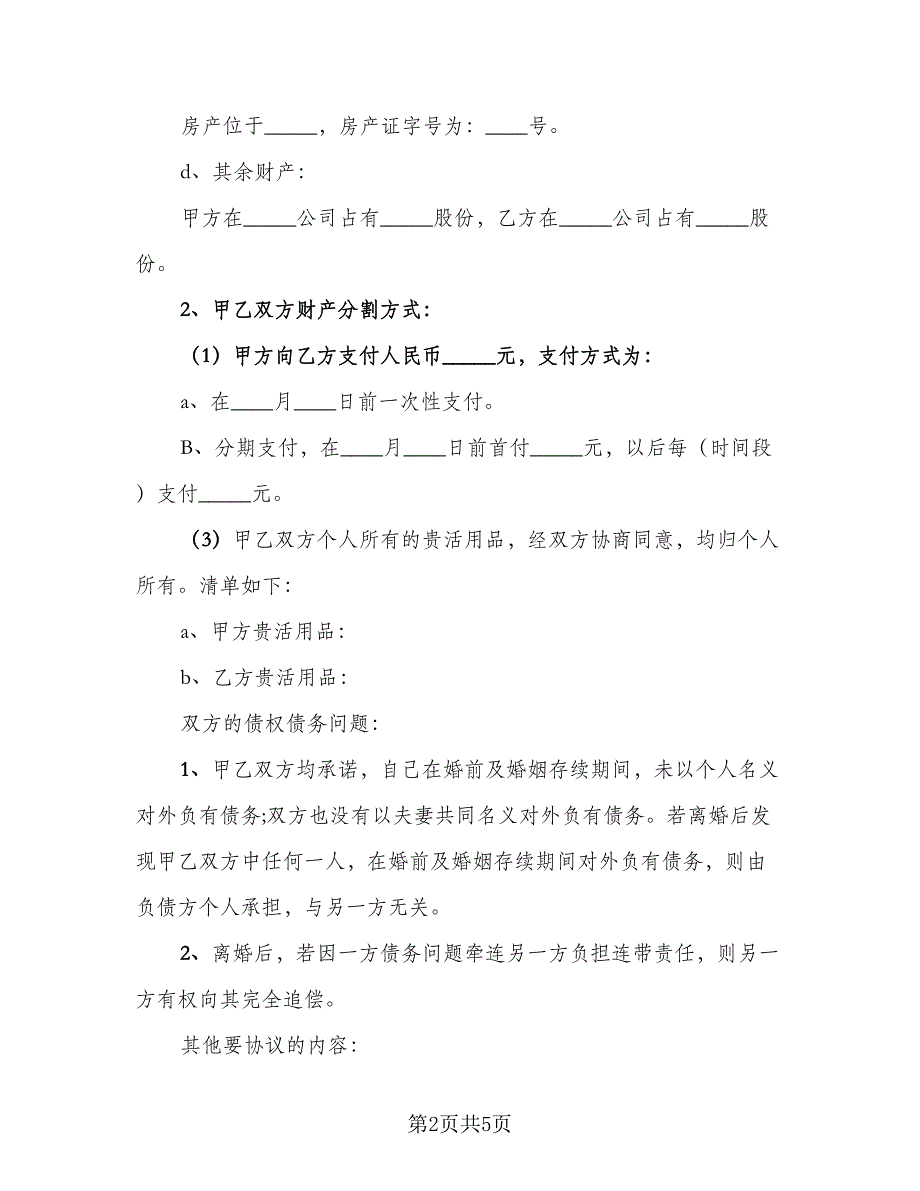 房产位于_____，房产证字号为：____号。
d、其余财产：
甲方在_____公司占有_____股份，乙方在_____公司占有_____股
份。
2、甲乙双方财产分割方式：
（1）甲方向乙方支付人民币_____元，支付方式为：
a、在____月____日前一次性支付。
B、分期支付，在____月____日前首付_____元，以后每（时间段
）支付_____元。
（3）甲乙双方个人所有的贵活用品，经双方协商同意，均归个人
所有。清单如下：
a、甲方贵活用品：
b、乙方贵活用品：
双方的债权债务问题：
1、甲乙双方均承诺，自己在婚前及婚姻存续期间，未以个人名义
对外负有债务;双方也没有以夫妻共同名义对外负有债务。若离婚后发
现甲乙双方中任何一人，在婚前及婚姻存续期间对外负有债务，则由
负债方个人承担，与另一方无关。
2、离婚后，若因一方债务问题牵连另一方负担连带责任，则另一
方有权向其完全追偿。
其他要协议的内容：
第2页共5页